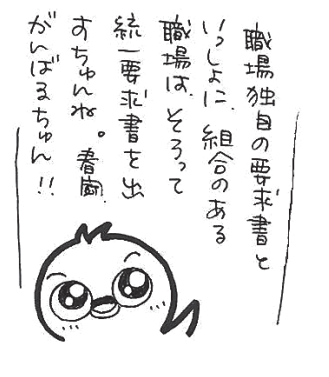 職場独自の要求書と
いっしょに、組合のある
職場は、そろって
統一要求書を出
すちゅんね。春闘、
がんばるちゅん!!